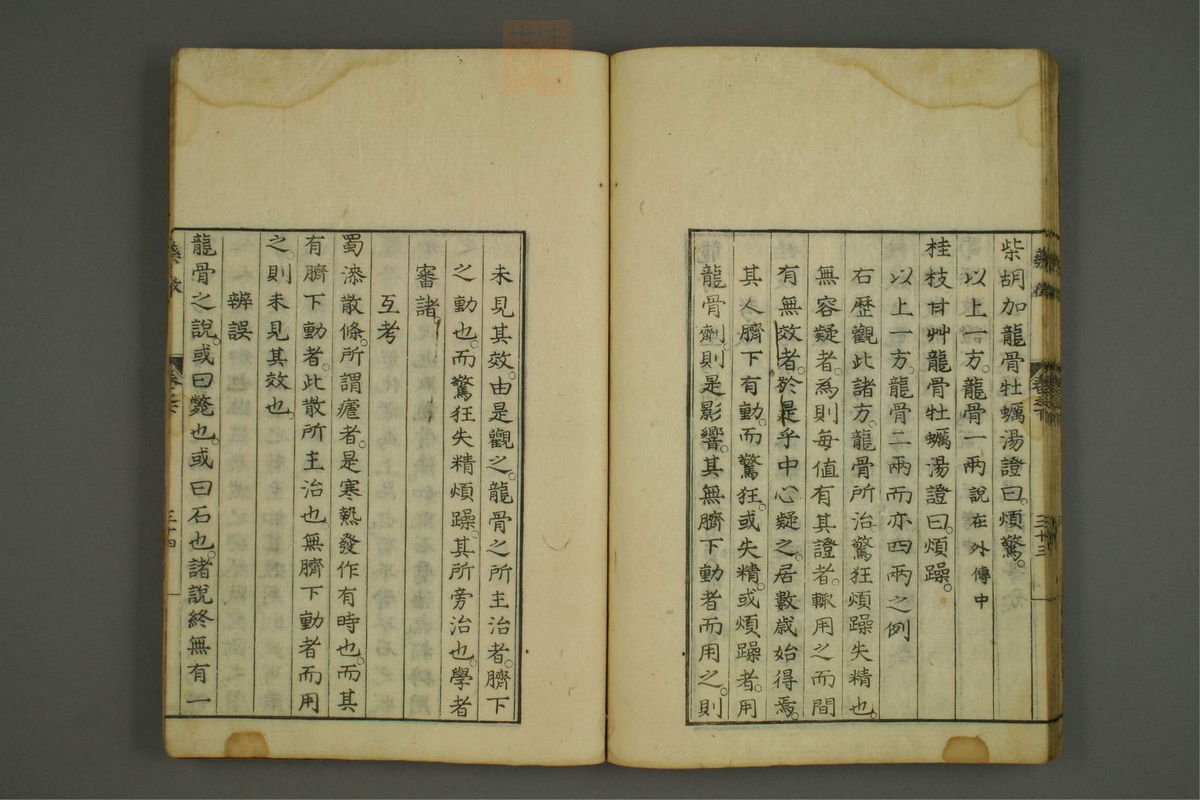 柴胡加龍骨牡蠣湯證曰。煩驚。
以上一方。龍骨一兩說在外傳中
桂枝甘艸龍骨牡蠣湯證曰。煩躁。
以上一方。龍骨二兩而亦四兩之例
右歷觀此諸方。龍骨所治。驚狂煩躁失精也。
無容疑者。為則每值有其證者。輙用之而間
有無效者。於是乎中心疑之。居數歲始得焉。
其人臍下有動。而驚狂。或失精。或煩躁者。用
龍骨劑。則是影響。其無臍下動者而用之。則
未見其效。由是觀之。龍骨之所主治者。臍下
之動也。而驚狂失精煩躁。其所旁治也。學者
審諸。
互考
蜀漆散條。所謂瘧者。是寒熱發作有時也。而其
有臍下動者。此散所主治也。無臍下動者而用
之。則未見其效也。
辨誤
龍骨之說。或曰斃也。或曰石也。諸說終無有一
三十四
三十三